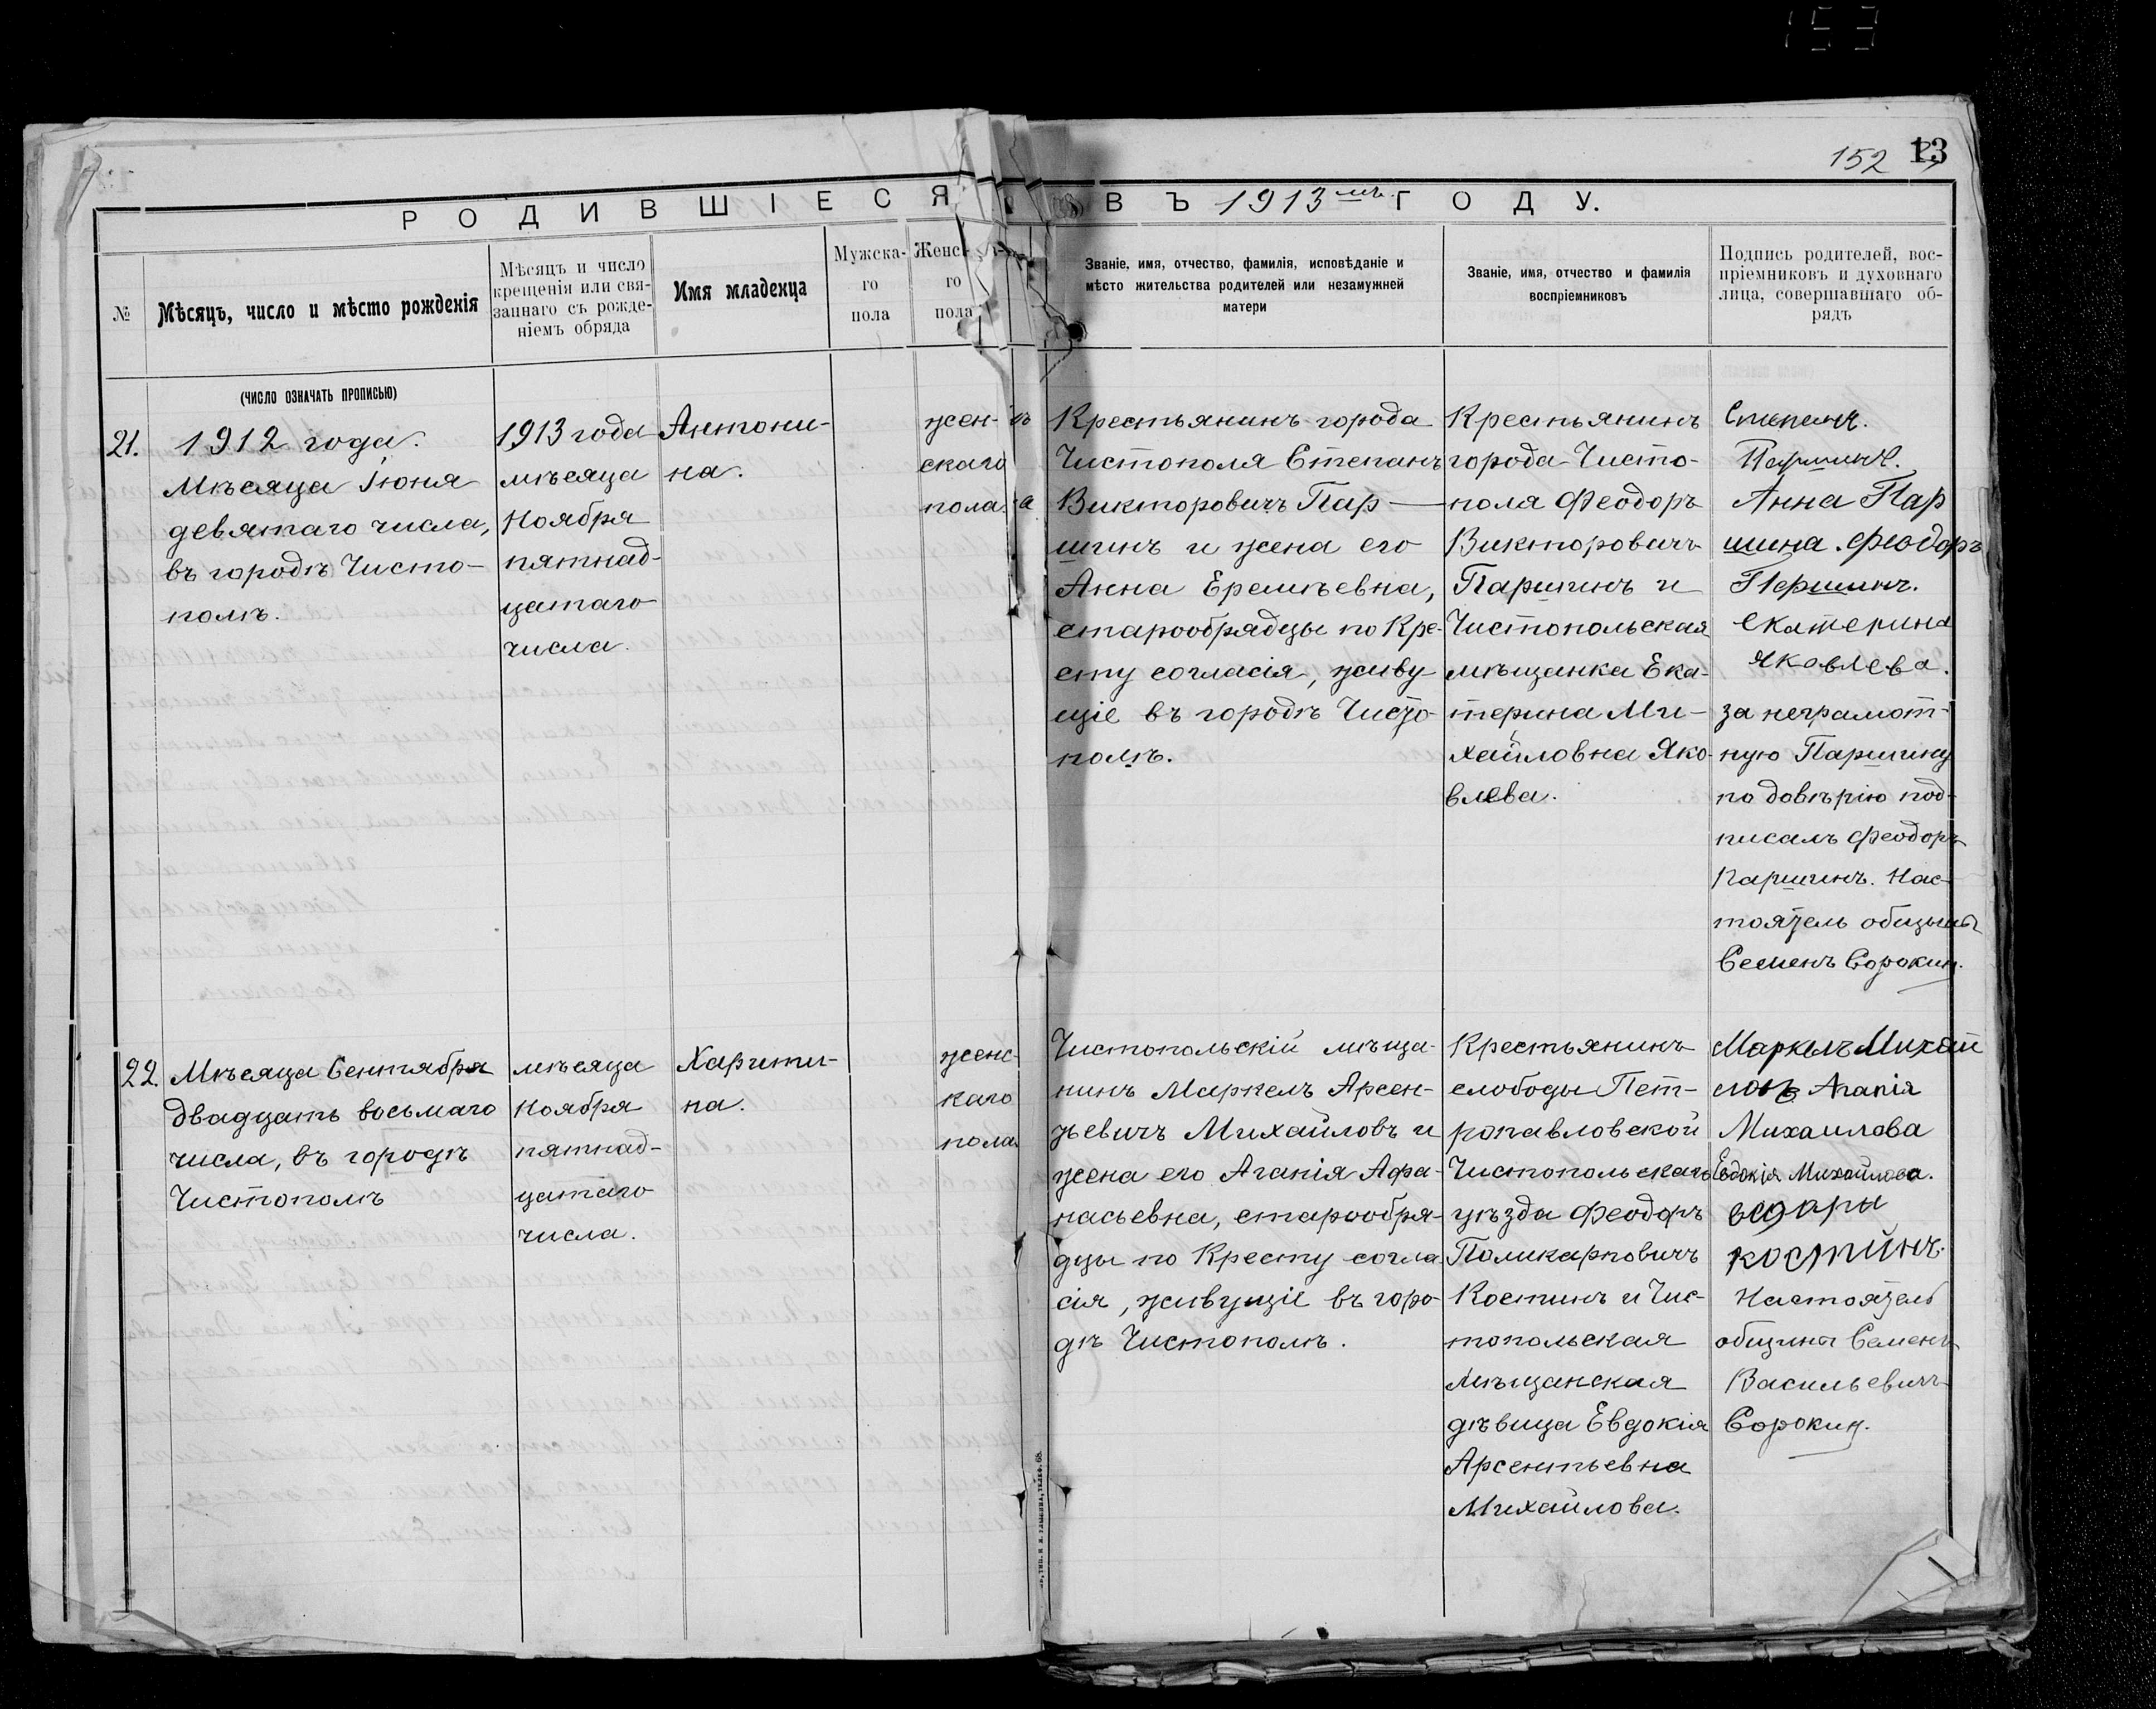 153
152 13
РОДИВШІЕСЯ ВЪ 1913 мъ ГОДУ.
№
Мѣсяцъ, число и мѣсто рожденія
Мѣсяцъ и число
крещенія или свя-
заннаго съ рожде-
ніемъ обряда
Имя младенца
Мужска-
го
пола
Женс
го
пола
Званіе, имя, отчество, фамилія, исповѣданіе и
мѣсто жительства родителей или незамужней
матери
Званіе, имя, отчество и фамилія
воспріемниковъ
Подпись родителей, вос-
пріемниковъ и духовнаго
лица, совершавшаго об-
рядъ
(ЧИСЛО ОЗНАЧАТЬ ПРОПИСЬЮ)
21.
1912 года.
Мѣсяца Іюня
девятаго числа,
въ городѣ Чисто-
полѣ.
1913 года
мѣсяца
Ноября
пятнад-
цатаго
числа.
Антони-
на.
жен-
скаго
пола.
Крестьянинъ города
Чистополя Степанъ
Викторовичъ Пар-
шинъ и жена его
Анна Еремѣевна,
старообрядцы по Кре-
сту согласія, живу-
щіе въ городѣ Чисто-
полѣ.
Крестьянинъ
города Чисто-
поля Феодоръ
Викторовичъ
Паршинъ и
Чистопольская
мѣщанка Ека-
терина Ми-
хайловна Яко-
влева.
Степанъ.
Паршинъ.
Анна Пар
шина. Феодоръ
Паршинъ.
Екатерина
Яковлева.
за неграмот-
ную Паршину
по довѣрію под-
писалъ Феодоръ
Паршинъ. Нас-
тоятель общины
Семенъ Сорокин.
22.
Мѣсяца Сентября
двадцать восьмаго
числа, въ городѣ
Чистополѣ
мѣсяца
Ноября
пятнад-
цатаго
числа.
Харити-
на.
женс-
каго
пола.
Чистопольскій мѣща-
нинъ Маркелъ Арсен-
ьевичъ Михайловъ и
жена его Агапія Афа-
насьевна, старообря-
дцы по Кресту согла-
сія, живущіе въ горо-
дѣ Чистополѣ.
Крестьянинъ
слободы Пет-
ропавловской
Чистопольскаго
уѣзда Феодоръ
Поликарповичъ
Костинъ и Чис-
топольская
мѣщанская
дѣвица Евдокія
Арсентьевна
Михайлова.
Маркелъ Михай
ловъ Агапія
Михаилова
Евдокія Михайлова.
костйнъ.
Настоятель
общины Семенъ
Васильевичъ
Сорокин.